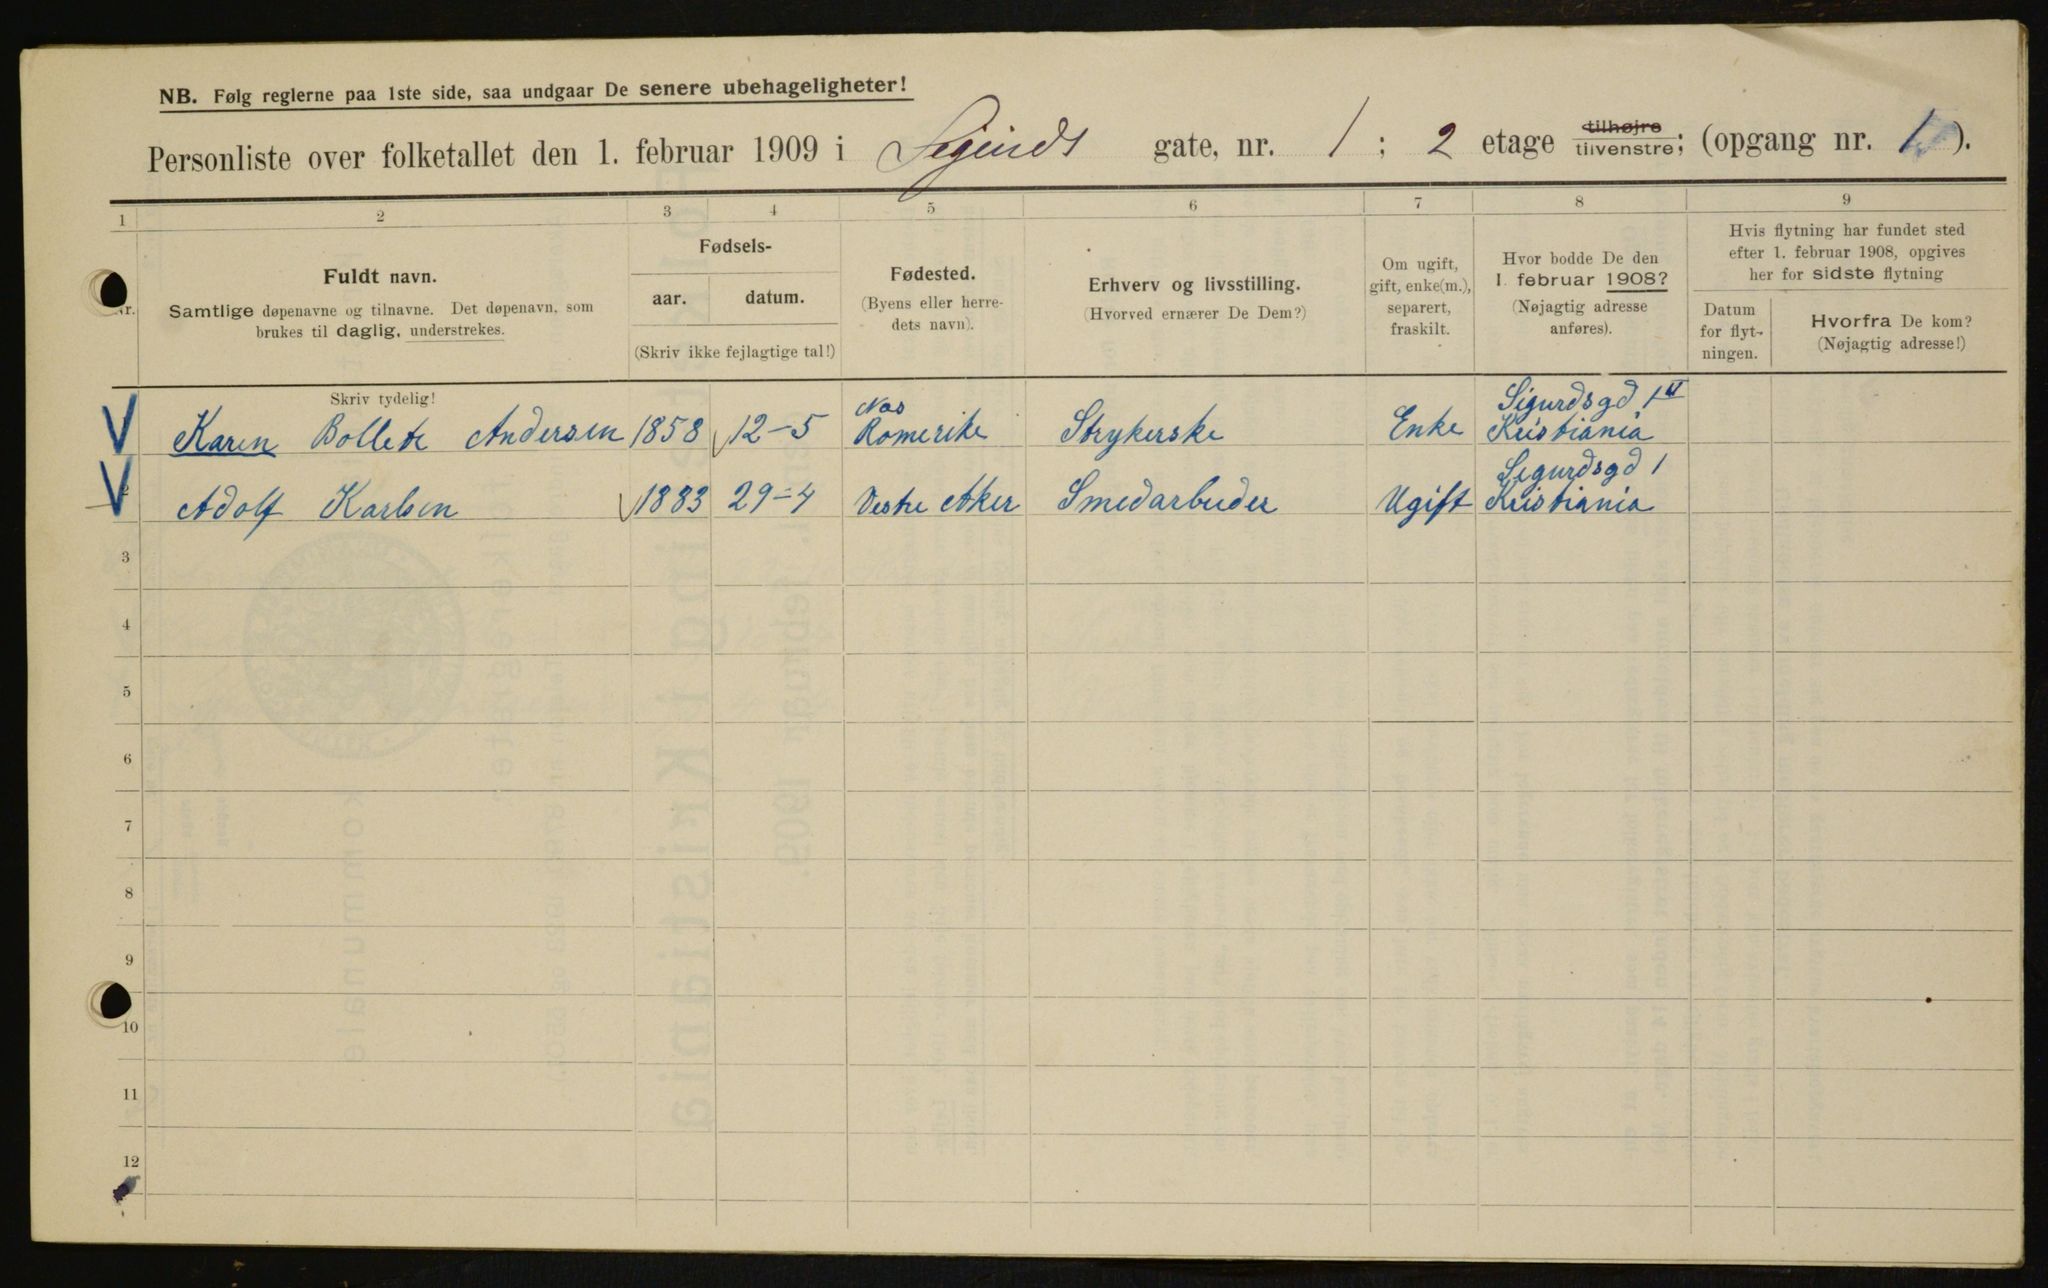 NB. Følg reglerne paa 1ste side, saa undgaar De senere ubehageligheter!
Personliste over folketallet den 1. februar 1909 i Sigurds gate, nr. 1; 2 etage tilhøjre tilvenstre; (opgang nr. 1).
1 2 3 4 5 6 7 8 9
Nr.
Fuldt navn.
Samtlige døpenavne og tilnavne. Det døpenavn, som
brukes til daglig, understrekes.
Fødsels-
aar. datum.
(Skriv ikke fejlagtige tal!)
Fødested.
(Byens eller herre-
dets navn).
Erhverv og livsstilling.
(Hvorved ernærer De Dem?)
Om ugift,
gift, enke(m.),
separert,
fraskilt.
Hvor bodde De den
1. februar 1908?
(Nøjagtig adresse
anføres).
Hvis flytning har fundet sted
efter 1. februar 1908, opgives
her for sidste flytning
Datum
for flyt-
ningen.
Hvorfra De kom?
(Nøjagtig adresse!)
Skriv tydelig!
Nes Sigurdsgd 1 II
Karen Bollete Andersen 1858 12-5 Romerike Strykerske Enke Kristiania
Sigurdsgd 1
2 Adolf Karlsen 1883 29-4 Vestre Aker Smedarbeider Ugift Kristiania
3
4
5
6
7
8
9
10
11
12